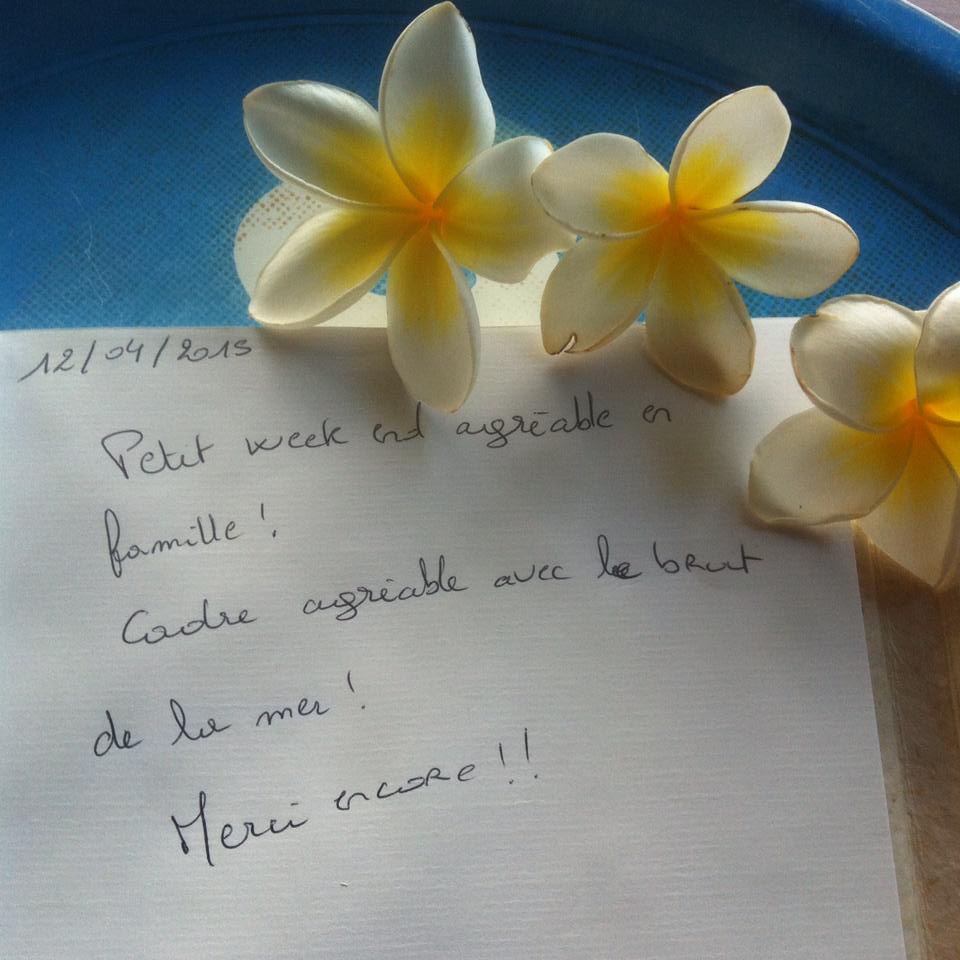 12/04/2015
Petit week end agréable en
famille !
Cadre agréable avec le bruit
de la mer !
Merci encore !!